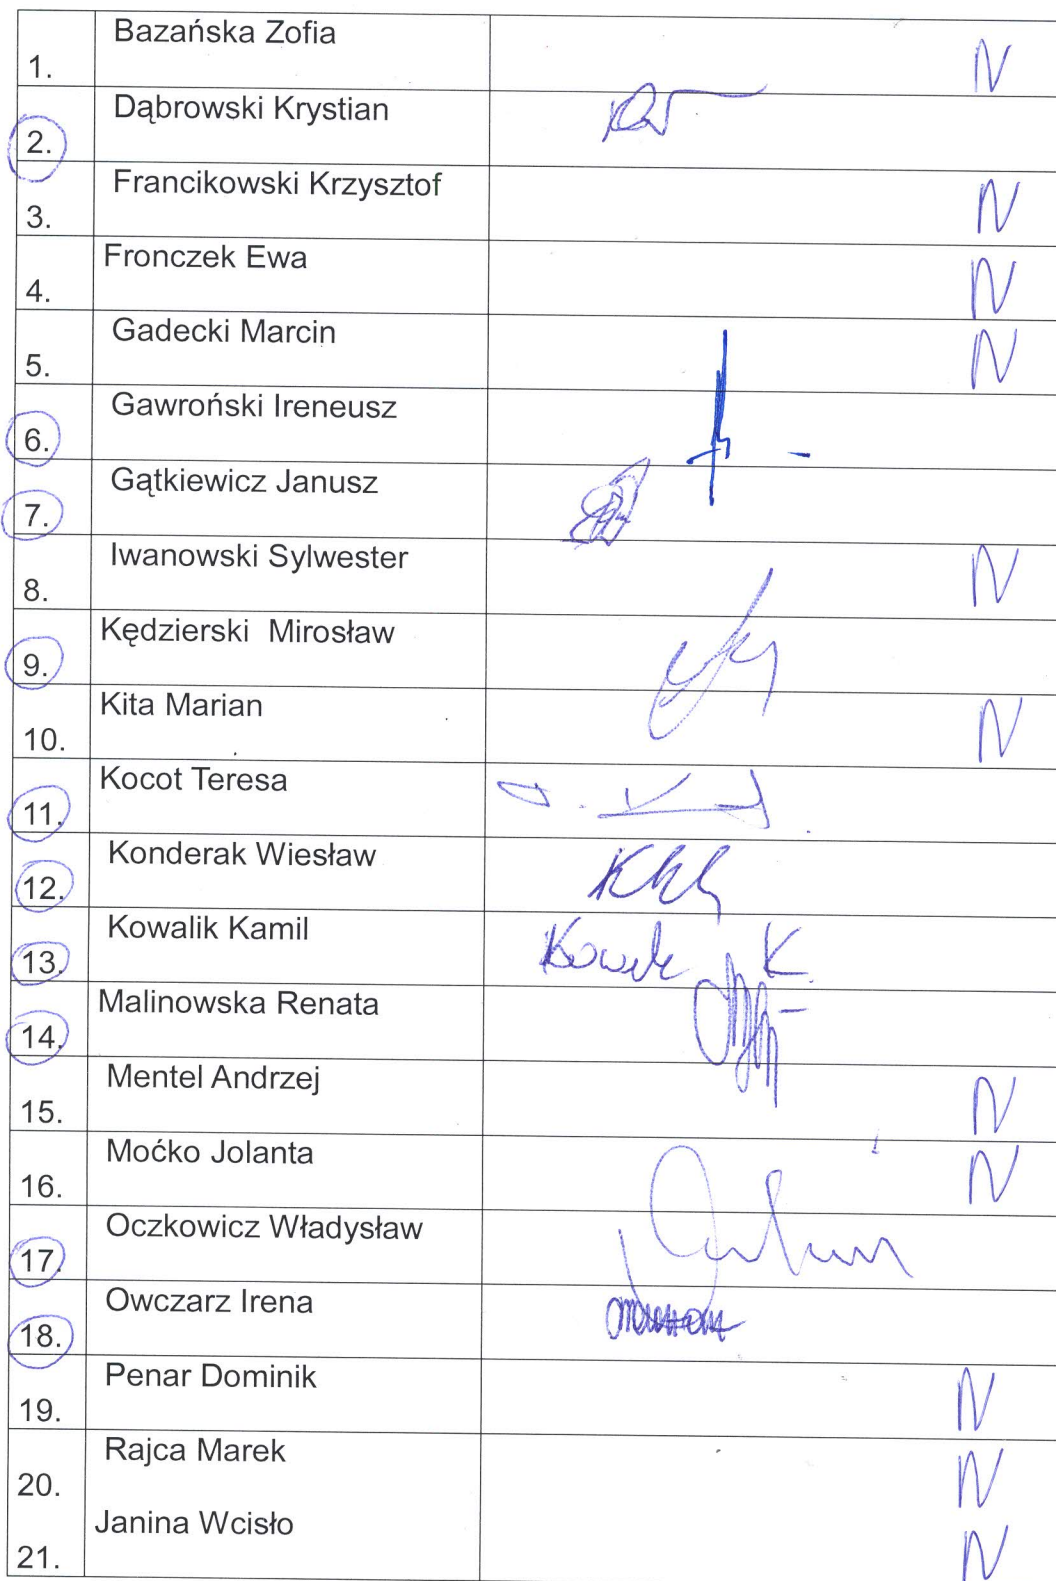 Bazańska Zofia
1. N
Dąbrowski Krystian
2.
Francikowski Krzysztof
3. N
Fronczek Ewa
4. N
Gadecki Marcin
5. N
Gawroński Ireneusz
6.
Gątkiewicz Janusz
7.
Iwanowski Sylwester
8. N
Kędzierski Mirosław
9.
Kita Marian
10. N
Kocot Teresa
11.
Konderak Wiesław
12.
Kowalik Kamil
13. K.
Malinowska Renata
14.
Mentel Andrzej
15. N
Moćko Jolanta
16. N
Oczkowicz Władysław
17.
Owczarz Irena
18.
Penar Dominik
19. N
Rajca Marek
20. N
Janina Wcisło
21. N